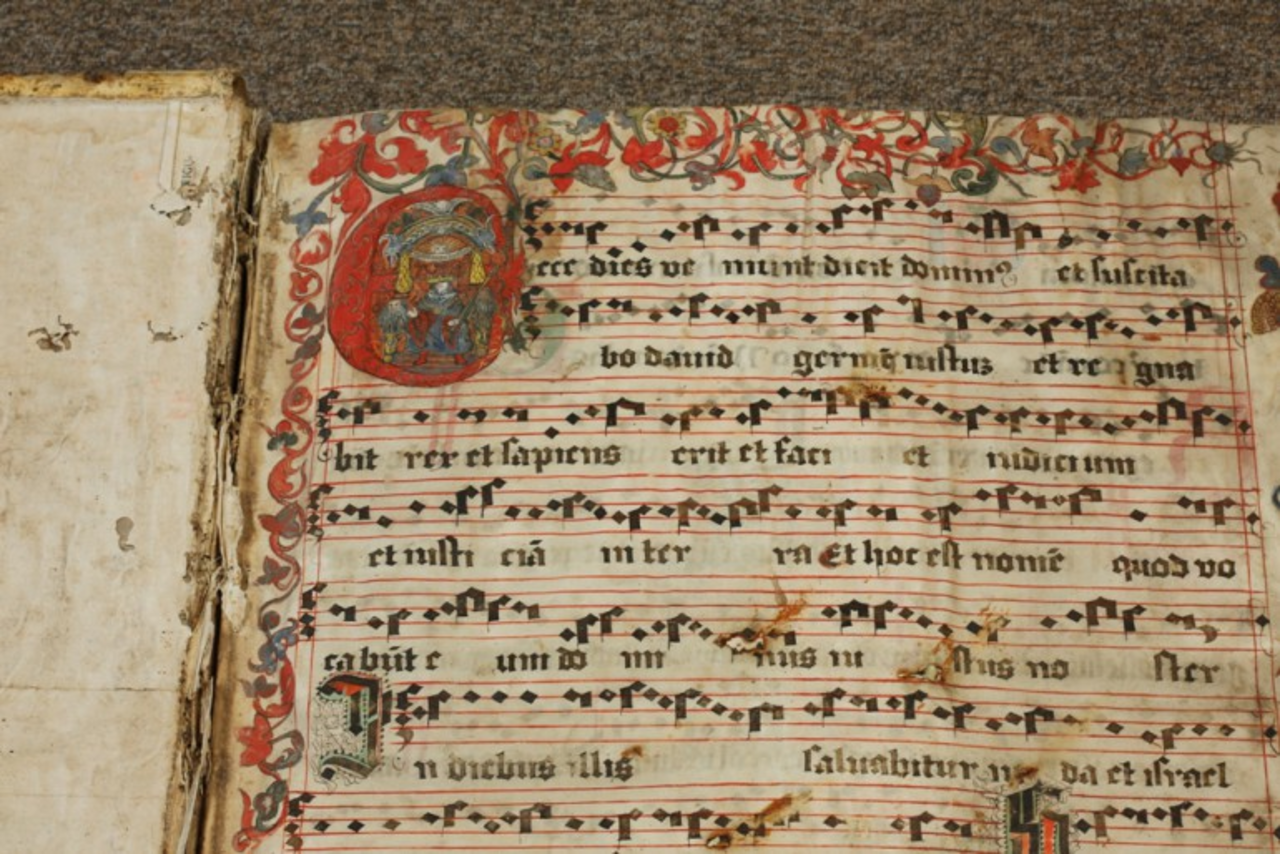 Ecce dies ve niunt dicit domin⁹ et suscita
bo dauid germē iustuz et re gna
bit rex et sapiens erit et faci et iudicium
et iusti ciā in ter ra Et hoc est nomē quod vo
cabūt e um do mi nus iu stus no ster
In diebus illis saluabitur iu da et israel